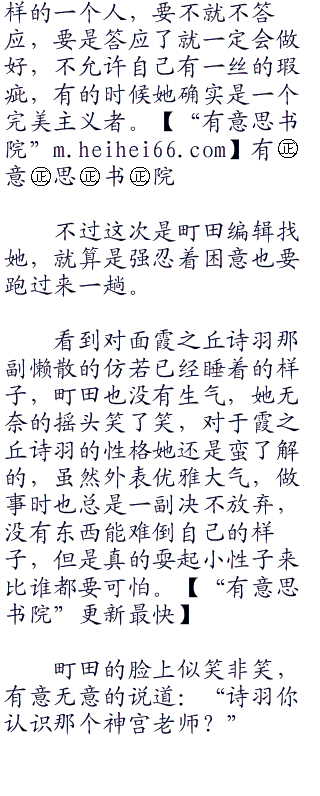 样的一个人，要不就不答
应，要是答应了就一定会做
好，不允许自己有一丝的瑕
疵，有的时候她确实是一个
完美主义者。【“有意思书
院”m.heihei66.com】有㊣
意㊣思㊣书㊣院
不过这次是町田编辑找
她，就算是强忍着困意也要
跑过来一趟。
看到对面霞之丘诗羽那
副懒散的仿若已经睡着的样
子，町田也没有生气，她无
奈的摇头笑了笑，对于霞之
丘诗羽的性格她还是蛮了解
的，虽然外表优雅大气，做
事时也总是一副决不放弃，
没有东西能难倒自己的样
子，但是真的耍起小性子来
比谁都要可怕。【“有意思
书院”更新最快】
町田的脸上似笑非笑，
有意无意的说道：“诗羽你
认识那个神宫老师？”